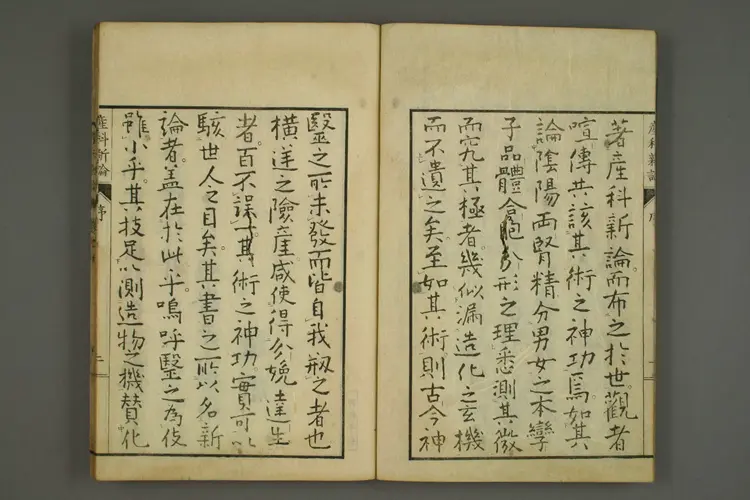 著産科新論而布之於世觀者
喧傳共該其術之神功焉如其
論陰陽両腎精分男女之本孿
子品體含胞分形之理悉測其微
而究其極者幾似漏造化之玄機
而不遺之矣至如其術則古今神
毉之所未發而皆自我剏之者也
横逆之險産咸使得分娩達生
者百不誤一其術之神功實可以
駭世人之目矣其書之所以名新
論者蓋在於此乎嗚呼毉之為伎
雖小乎其技足以測造物之機賛化
産科新論
序
二